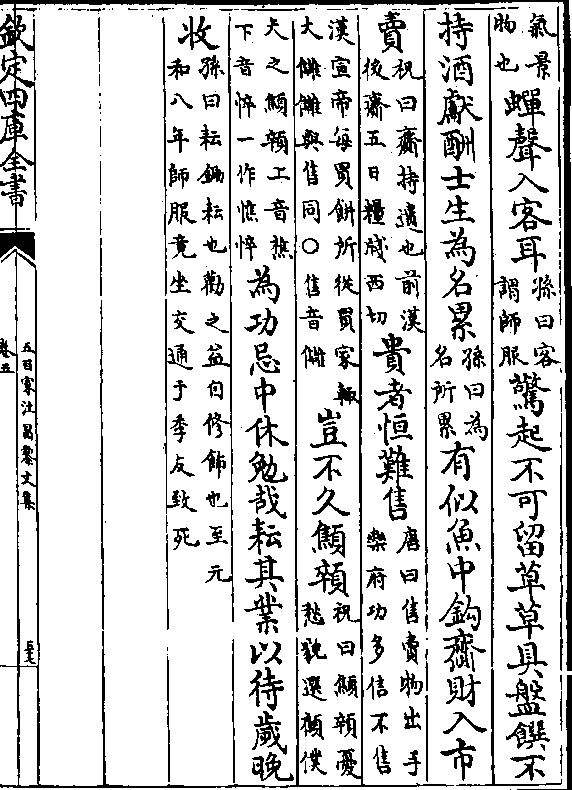 氣景物也蟬聲入客耳孫曰客謂師服驚起不可留草草具盤饌不
持酒獻酬士生為名累孫曰為名所累有似魚中鈎齎財入市
賣祝曰齎持遺也前漢後齎五日糧牋西切貴者恒難售唐曰售賣物出手樂府功多信不售
漢宣帝每買餅所從買家輙大讎讎與售同○售音讎豈不久顦顇祝曰顦顇憂愁貌選顔僕
夫之顦顇上音樵下音悴一作憔悴為功忌中休勉哉耘其業以待歲晚
收孫曰耘鋤耘也勸之益自修飾也至元和八年師服竟坐交通于季友致死
欽定四庫全書
五百家注昌黎文集
卷五